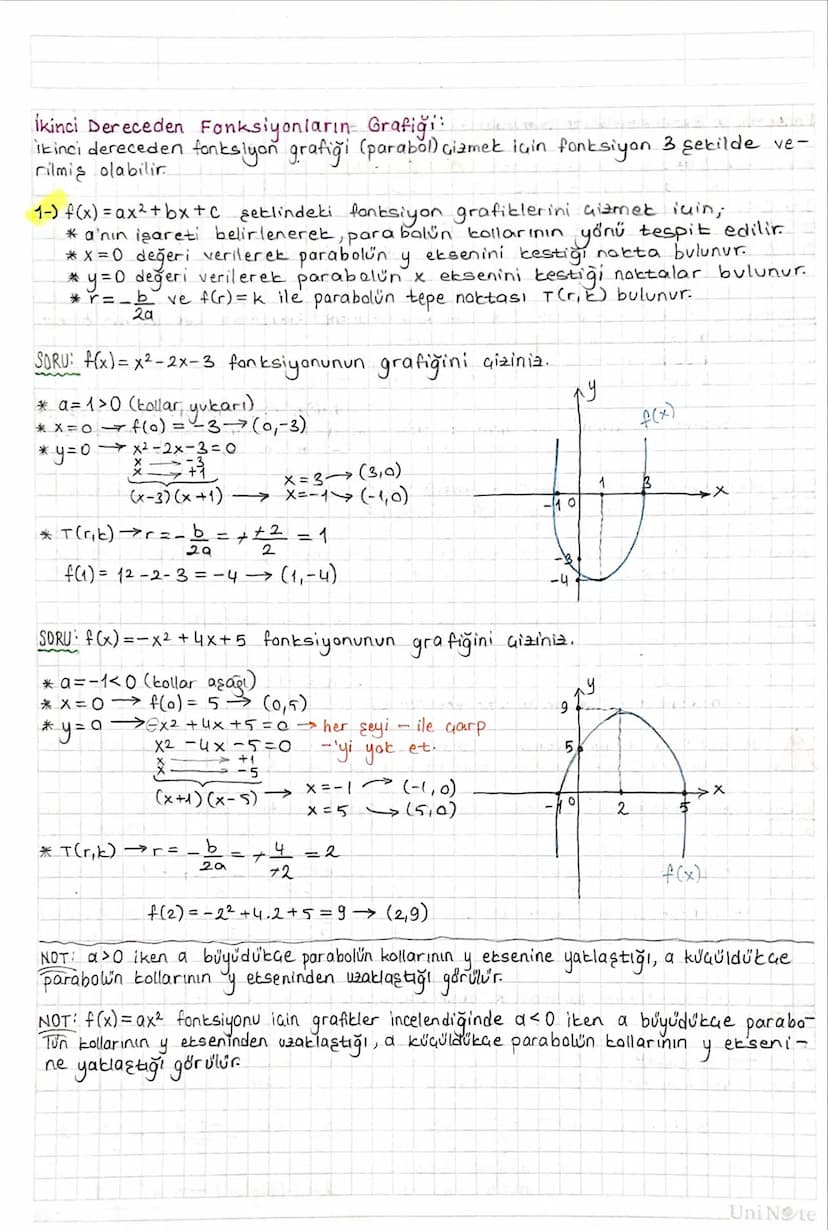 İkinci Dereceden Fonksiyonların Grafiği:
İkinci dereceden fonksiyon grafiği (parabol) çizmek için fonksiyon 3 şekilde ve-
rilmiş olabilir.
1-) f(x) = ax² + bx + c şeklindeki fonksiyon grafiklerini çizmek için;
* a'nın işareti belirlenerek, parabolün kollarının yönü tespit edilir.
* x=0 değeri verilerek parabolün y eksenini kestiği nokta bulunur.
* y=0 değeri verilerek parabolün x eksenini kestiği noktalar bulunur.
* r = -b/2a ve f(r)=k ile parabolün tepe noktası T(r,k) bulunur.
SORU: f(x) = x² - 2x - 3 fonksiyonunun grafiğini çiziniz.
* a=1>0 (kollar yukarı)
* x=0 → f(0) = -3 → (0,-3)
* y=0 → x² - 2x - 3 = 0
x → -3
x → +1
(x-3)(x+1) → x=3 → (3,0)
x=-1 → (-1,0)
* T(r,k) → r = -b/2a = ++2/2 = 1
f(1) = 12 - 2 - 3 = -4 → (1,-4)
y
f(x)
1
3
x
-1
0
-3
-4
SORU: f(x) = -x² + 4x + 5 fonksiyonunun grafiğini çiziniz.
* a=-1<0 (kollar aşağı)
* x=0 → f(0) = 5 → (0,5)
* y=0 → -x² + 4x + 5 = 0 → her şeyi - ile çarp
x² - 4x - 5 = 0 -'yi yok et.
x → +1
x → -5
(x+1)(x-5) → x=-1 → (-1,0)
x=5 → (5,0)
* T(r,k) → r = -b/2a = +4/+2 = 2
f(2) = -2² + 4.2 + 5 = 9 → (2,9)
y
9
5
x
-1
0
2
5
f(x)
NOT: a>0 iken a büyüdükçe parabolün kollarının y eksenine yaklaştığı, a küçüldükçe
parabolün kollarının y ekseninden uzaklaştığı görülür.
NOT: f(x) = ax² fonksiyonu için grafikler incelendiğinde a<0 iken a büyüdükçe parabo-
lün kollarının y ekseninden uzaklaştığı, a küçüldükçe parabolün kollarının y ekseni-
ne yaklaştığı görülür.
UniNote